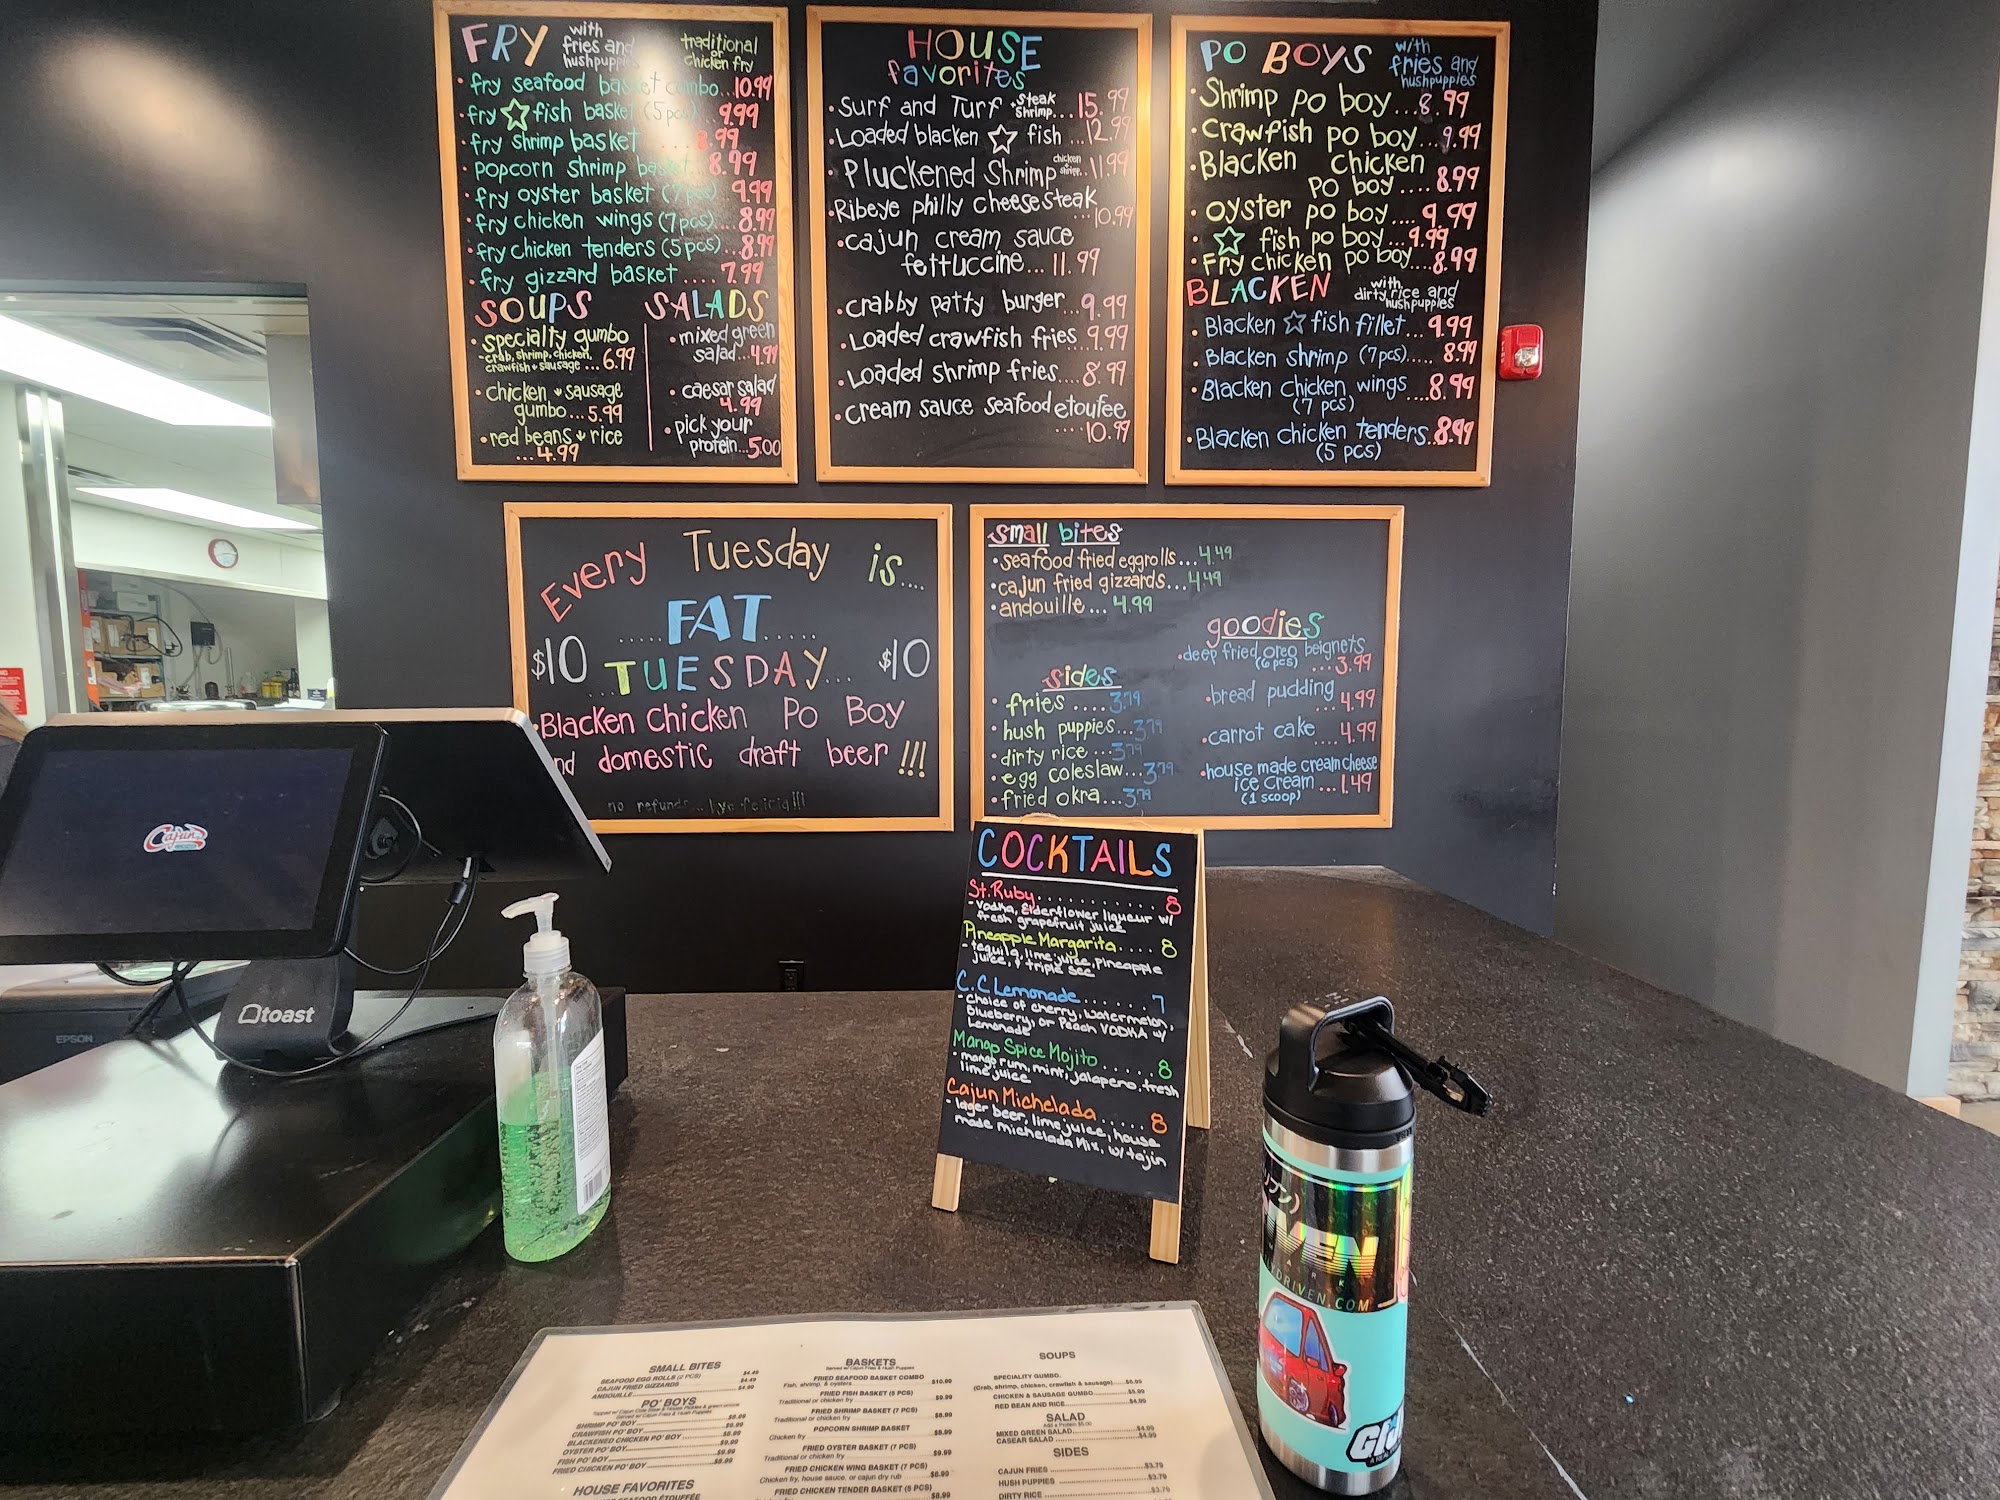 FRY with fries and hushpuppies traditional or chicken fry
• fry seafood basket combo...10.99
• fry ☆ fish basket (5pcs)...9.99
• fry shrimp basket 8.99
• popcorn shrimp basket 8.99
• fry oyster basket (7pcs) 9.99
• fry chicken wings (7pcs)...8.99
• fry chicken tenders (5pcs)...8.99
• fry gizzard basket....7.99
SOUPS
• specialty gumbo
- crab, shrimp, chicken,
crawfish + sausage ...6.99
• chicken + sausage
gumbo...5.99
• red beans + rice
...4.99
SALADS
• mixed green
salad...4.99
• caesar salad
4.99
• pick your
protein...5.00
HOUSE
favorites
• Surf and Turf steak shrimp...15.99
• Loaded blacken ☆ fish ...12.99
• Pluckened Shrimp chicken + shrimp..11.99
• Ribeye philly cheesesteak
...10.99
• cajun cream sauce
fettuccine...11.99
• crabby patty burger...9.99
• Loaded crawfish fries..9.99
• Loaded shrimp fries....8.99
• cream sauce seafood etoufee
....10.99
PO BOYS with fries and hushpuppies
• Shrimp po boy...8.99
• Crawfish po boy...9.99
• Blacken chicken
po boy....8.99
• oyster po boy....9.99
• ☆ fish po boy...9.99
• Fry chicken po boy....8.99
BLACKEN with dirty rice and hushpuppies
• Blacken ☆ fish fillet..9.99
• Blacken shrimp (7pcs).....8.99
• Blacken chicken wings ...8.99
(7 pcs)
• Blacken chicken tenders..8.99
(5 pcs)
Every Tuesday is....
.....FAT.....
$10 ...TUESDAY... $10
• Blacken Chicken Po Boy
and domestic draft beer!!!
no refunds... bye felicia!!!
small bites
• seafood fried eggrolls...4.49
• cajun fried gizzards...4.49
• andouille...4.99
sides
• fries ....3.79
• hush puppies...3.79
• dirty rice ...3.79
• egg coleslaw...3.79
• fried okra...3.79
goodies
• deep fried oreo beignets
(6 pcs) ...3.99
• bread pudding
...4.99
• carrot cake
....4.99
• house made cream cheese
ice cream ...1.49
(1 scoop)
COCKTAILS
St. Ruby..........8
- Vodka, Elderflower liqueur w/
fresh grapefruit juice
Pineapple Margarita....8
- tequila, lime juice, pineapple
juice, + triple sec
C.C Lemonade......7
- Choice of cherry, watermelon,
blueberry, or Peach VODKA w/
Lemonade
Mango Spice Mojito.....8
- mango rum, mint, jalapeno, fresh
lime juice
Cajun Michelada.....8
- lager beer, lime juice, house
made michelada Mix, w/ tajin
Cajun
toast
EPSON
YETI
IVEN
DRIVEN.COM
SMALL BITES
SEAFOOD EGG ROLLS (2 PCS) $4.49
CAJUN FRIED GIZZARDS $4.49
ANDOUILLE $4.99
PO' BOYS
Served w/ Cajun Fries & Hush Puppies
SHRIMP PO' BOY $8.99
CRAWFISH PO' BOY $9.99
BLACKENED CHICKEN PO' BOY $8.99
OYSTER PO' BOY $9.99
FISH PO' BOY $9.99
FRIED CHICKEN PO' BOY $8.99
HOUSE FAVORITES
BASKETS
Served w/ Cajun Fries & Hush Puppies
FRIED SEAFOOD BASKET COMBO
Fish, shrimp, & oysters $10.99
FRIED FISH BASKET (5 PCS)
Traditional or chicken fry $9.99
FRIED SHRIMP BASKET (7 PCS)
Traditional or chicken fry $8.99
POPCORN SHRIMP BASKET
Chicken fry $8.99
FRIED OYSTER BASKET (7 PCS)
Traditional or chicken fry $9.99
FRIED CHICKEN WING BASKET (7 PCS)
Chicken fry, house sauce, or cajun dry rub $8.99
FRIED CHICKEN TENDER BASKET (5 PCS)
$8.99
SOUPS
SPECIALITY GUMBO.
(Crab, shrimp, chicken, crawfish & sausage) $6.99
CHICKEN & SAUSAGE GUMBO $5.99
RED BEAN AND RICE $4.99
SALAD
Add a Protein $5.00
MIXED GREEN SALAD $4.99
CASEAR SALAD $4.99
SIDES
CAJUN FRIES $3.79
HUSH PUPPIES $3.79
DIRTY RICE $3.79